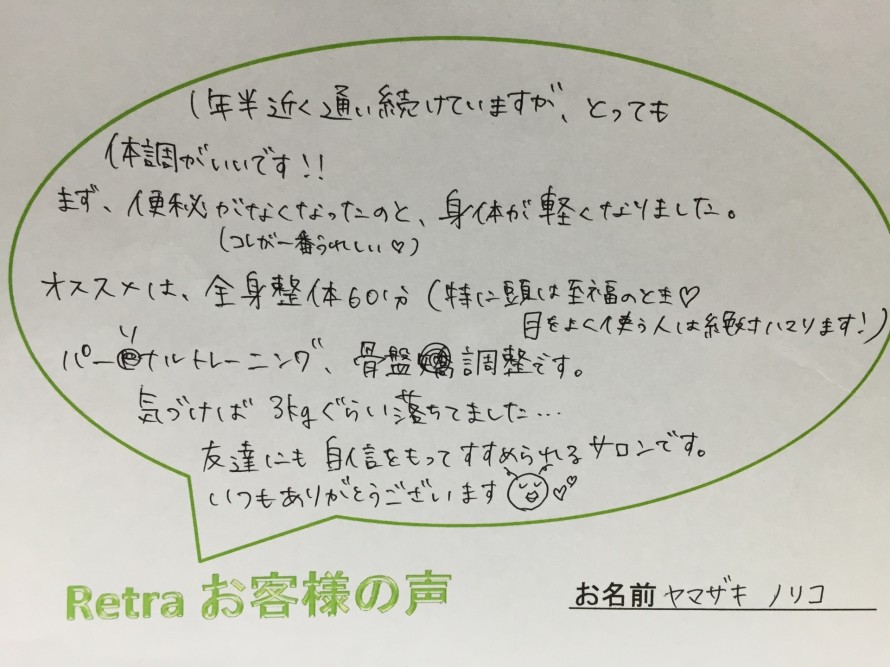 1年半近く通い続けていますが、とっても
体調がいいです!!
まず、便秘がなくなったのと、身体が軽くなりました。
(コレが一番うれしい♡)
オススメは、全身整体60分(特に頭は至福のとき♡
目をよく使う人は絶対ハマります!)
パーソナルトレーニング、骨盤調整です。
気づけば3kgぐらい落ちてました…
友達にも自信をもってすすめられるサロンです。
いつもありがとうございます
Retra お客様の声
お名前 ヤマザキ ノリコ